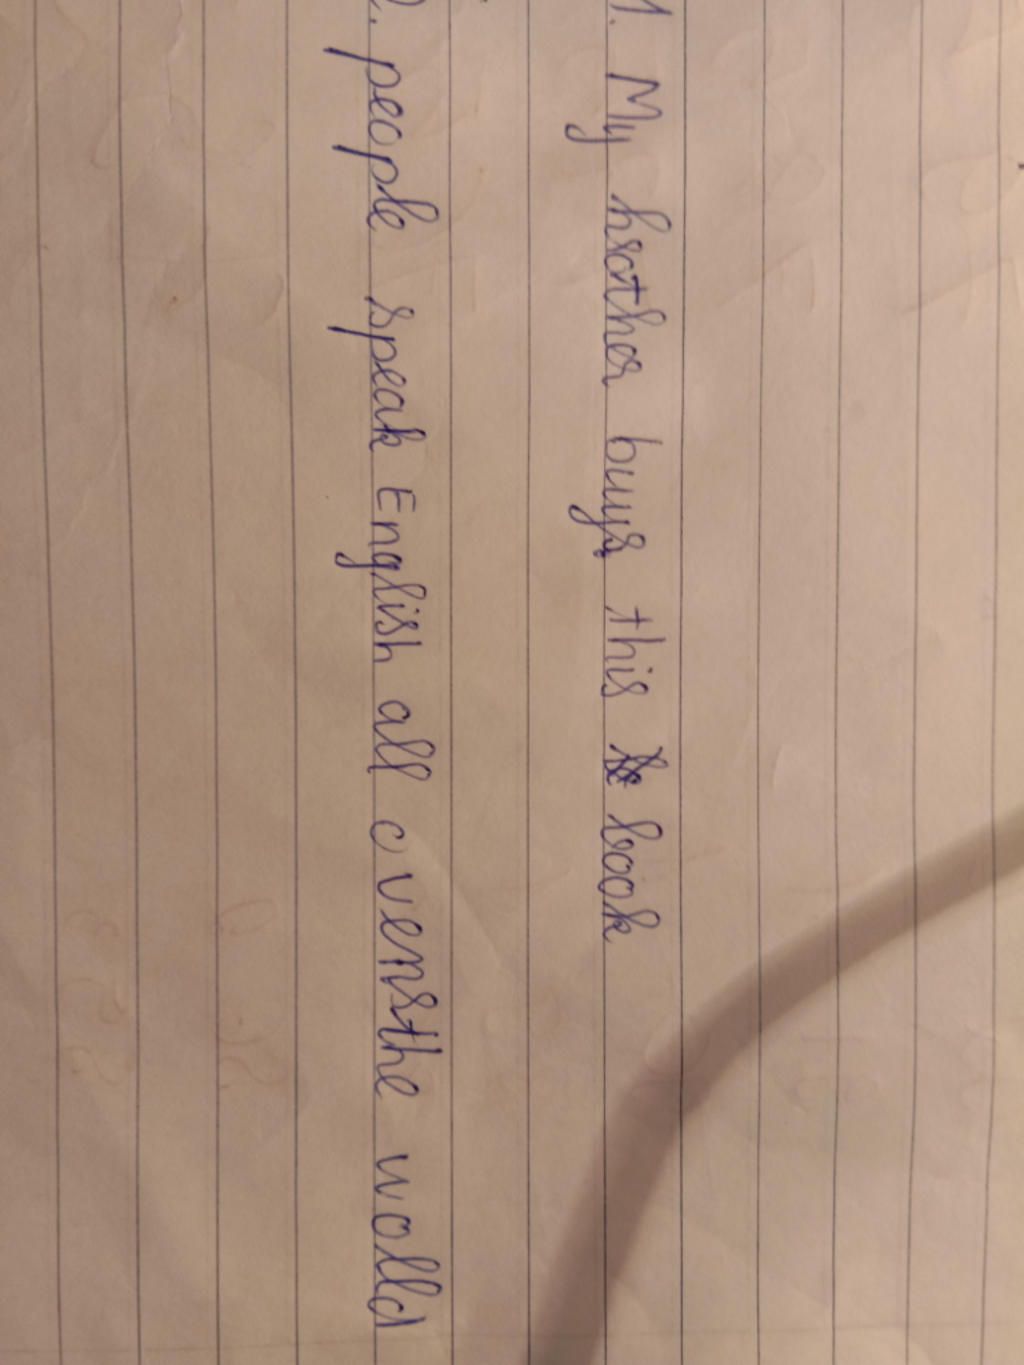 1. My brother buys this book
2. people speak English all oversthe wolld